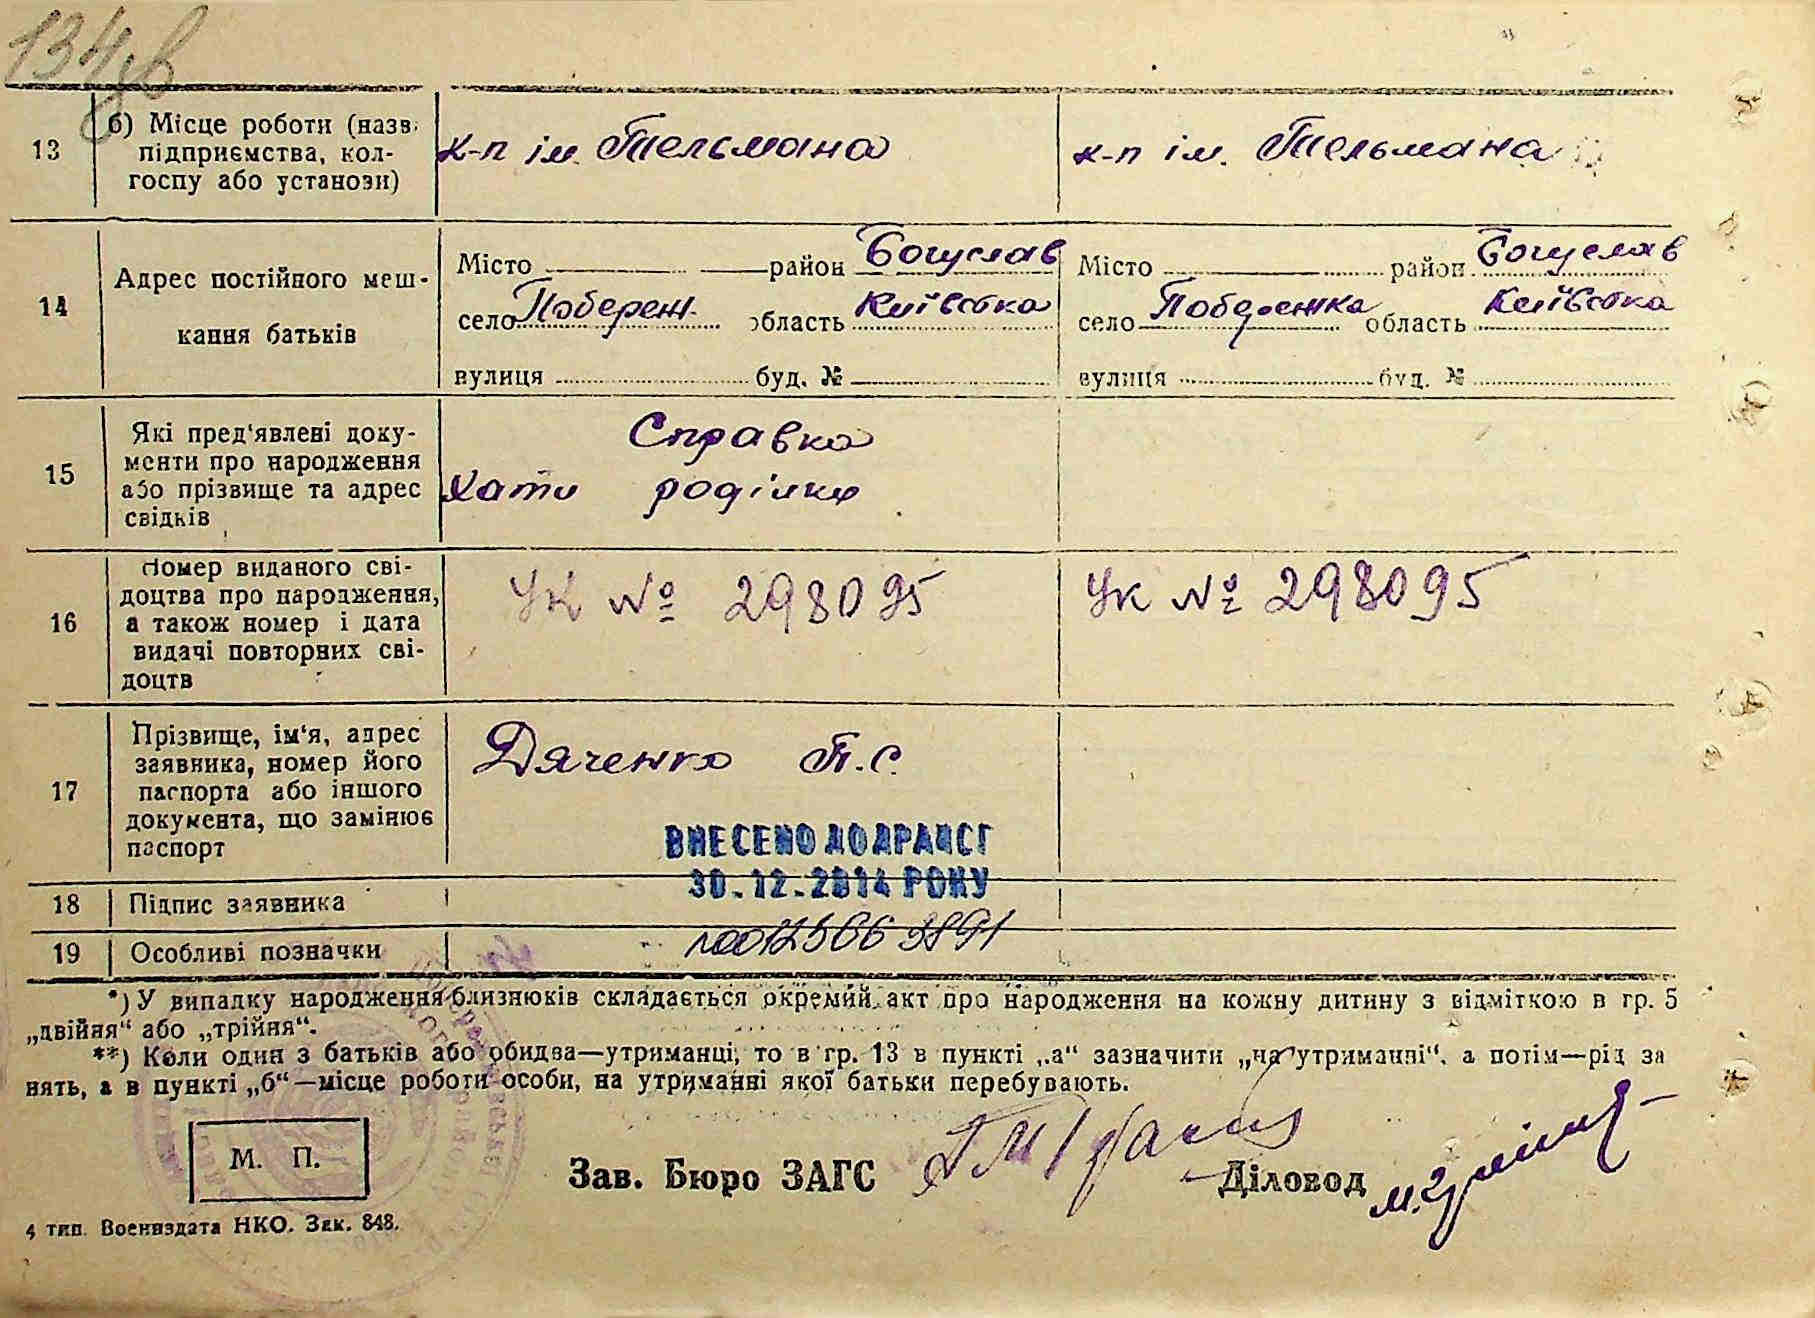 134 зв
13 б) Місце роботи (назв. підприємства, колгоспу або установи)
к-п ім. Тельмана
к-п ім. Тельмана
14 Адрес постійного мешкання батьків
Місто район Богуслав
село Побереж. область Київська
вулиця буд. №
Місто район Богуслав
село Побережка область Київська
вулиця буд. №
15 Які пред'явлені документи про народження або прізвище та адрес свідків
Справка
Хати роділки
16 Номер виданого свідоцтва про народження, а також номер і дата видачі повторних свідоцтв
УК № 298095
УК № 298095
17 Прізвище, ім'я, адрес заявника, номер його паспорта або іншого документа, що замінює паспорт
Дяченко П.С.
ВНЕСЕНО ДО ДРАЦСГ
30.12.2014 РОКУ
18 Підпис заявника
19 Особливі позначки
*) У випадку народження близнюків складається окремий акт про народження на кожну дитину з відміткою в гр. 5
„двійня“ або „трійня“.
**) Коли один з батьків або обидва—утриманці, то в гр. 13 в пункті „а“ зазначити „на утриманні“, а потім—рід за
нять, а в пункті „б“—місце роботи особи, на утриманні якої батьки перебувають.
М. П.
Зав. Бюро ЗАГС
Діловод
4 тип. Воениздата НКО. Зак. 848.